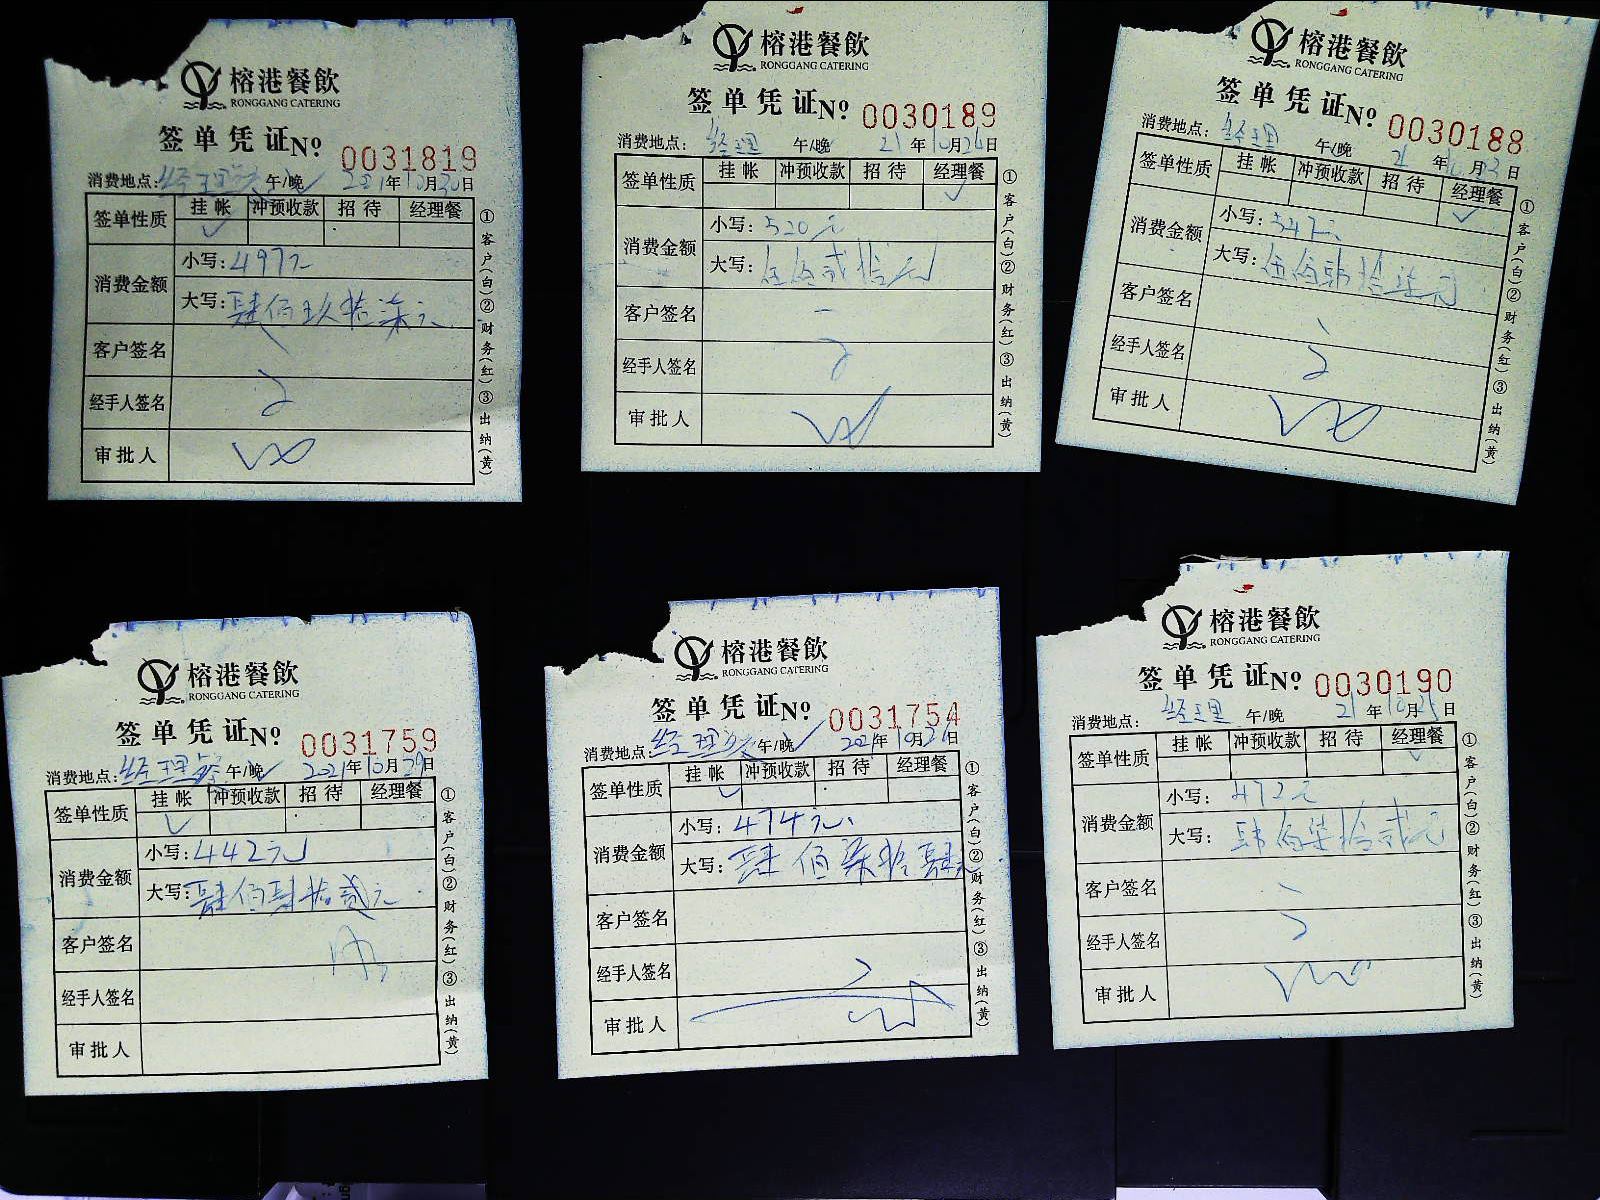 榕港餐飲
RONGGANG CATERING
签单凭证No 0031819
消费地点:经理餐 午/晚 2021年10月30日
签单性质 挂帐 冲预收款 招待 经理餐
消费金额
小写:497元
大写:肆佰玖拾柒元
客户签名
经手人签名
审批人
①客户(白)②财务(红)③出纳(黄)
榕港餐飲
RONGGANG CATERING
签单凭证No 0030189
消费地点:经理 午/晚 21年10月24日
签单性质 挂帐 冲预收款 招待 经理餐
消费金额
小写:520元
大写:伍佰贰拾元
客户签名
经手人签名
审批人
①客户(白)②财务(红)③出纳(黄)
榕港餐飲
RONGGANG CATERING
签单凭证No 0030188
消费地点:经理 午/晚 21年10月23日
签单性质 挂帐 冲预收款 招待 经理餐
消费金额
小写:547元
大写:伍佰肆拾柒元
客户签名
经手人签名
审批人
①客户(白)②财务(红)③出纳(黄)
榕港餐飲
RONGGANG CATERING
签单凭证No 0031759
消费地点:经理餐 午/晚 2021年10月29日
签单性质 挂帐 冲预收款 招待 经理餐
消费金额
小写:442元
大写:肆佰肆拾贰元
客户签名
经手人签名
审批人
①客户(白)②财务(红)③出纳(黄)
榕港餐飲
RONGGANG CATERING
签单凭证No 0031754
消费地点:经理餐 午/晚 2021年10月26日
签单性质 挂帐 冲预收款 招待 经理餐
消费金额
小写:474元
大写:肆佰柒拾肆元
客户签名
经手人签名
审批人
①客户(白)②财务(红)③出纳(黄)
榕港餐飲
RONGGANG CATERING
签单凭证No 0030190
消费地点:经理 午/晚 21年10月25日
签单性质 挂帐 冲预收款 招待 经理餐
消费金额
小写:472元
大写:肆佰柒拾贰元
客户签名
经手人签名
审批人
①客户(白)②财务(红)③出纳(黄)